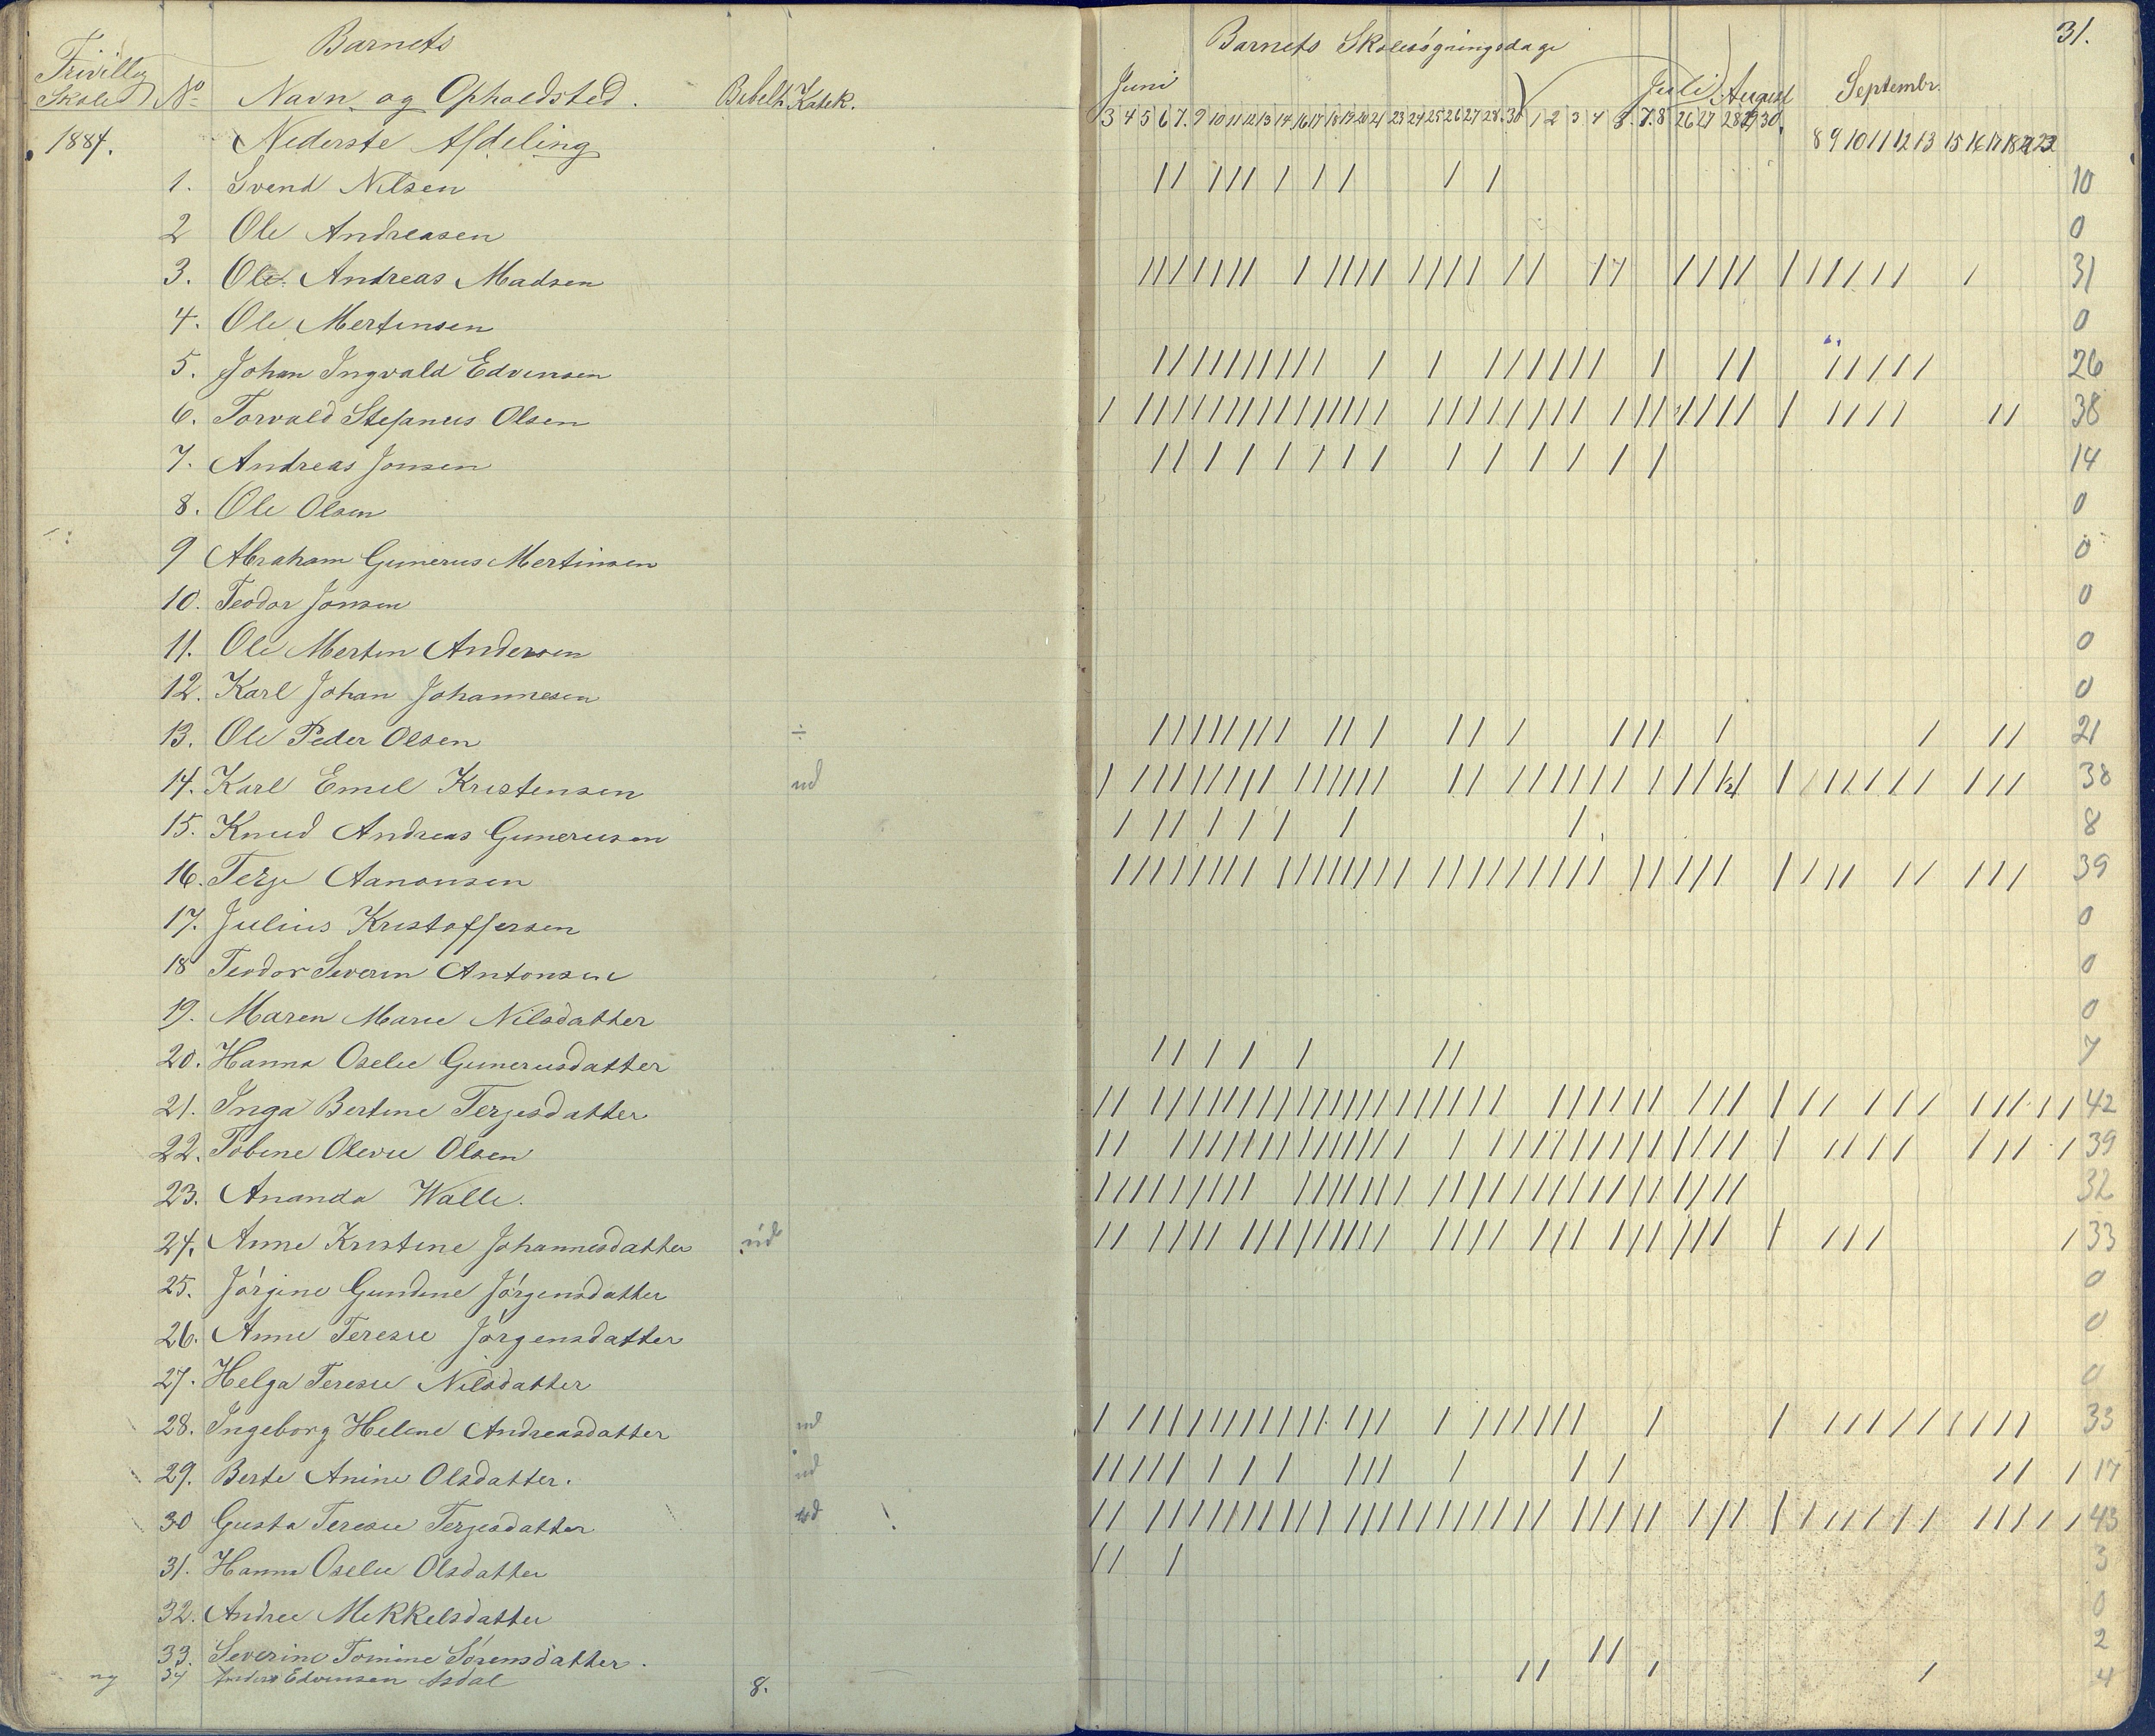 Barnets
Frivillig
Skole No Navn og Opholdsted. Bibelh. Katek.
1884. Nederste Afdeling
1. Svend Nilsen
2 Ole Andreasen
3. Ole Andreas Madsen
4. Ole Mertinsen
5. Johan Ingvald Edvinsen
6. Torvald Stefanus Olsen
7. Andreas Jonsen
8. Ole Olsen
9 Abraham Gunerus Mertinsen
10. Teodor Jonsen
11. Ole Mertin Andersen
12. Karl Johan Johannesen
13. Ole Peder Olsen ÷
14. Karl Emil Kristensen ud
15. Knud Andreas Gunerusen
16. Terje Aanonsen
17. Julius Kristoffersen
18 Teodor Severin Antonsen
19. Maren Marie Nilsdatter
20. Hanna Oselie Gunerusdatter
21. Inga Bertine Terjesdatter
22. Tobine Olevie Olsen
23. Ananda Walle.
24. Anne Kristine Johannesdatter ud
25. Jórgine Gundine Jórgensdatter
26. Anne Teresie Jórgensdatter
27. Helga Teresie Nilsdatter
28. Ingeborg Heline Andreasdatter ud
29. Berte Anine Olsdatter. ud
30 Gusta Teresie Terjesdatter ud
31. Hanna Oselie Olsdatter
32. Andree Mikkelsdatter
33. Severine Tomine Sórensdatter.
ny 34 Anders Edvinsen Asdal 8.
31.
Barnets Skolesógningsdage
Juni Juli August Septembr.
3 4 5 6 7. 9 10 11 12 13 14 16 17 18 19 20 21 23 24 25 26 27 28. 30 1 2 3 4 5. 7. 8 26 27 28 29 30.
8 9 10 11 12 13 15 16 17 18 22 23
// /// / // / / 10
0
/////// / //// //// // // //// / ////// / 31
0
////////// / / ////// / // ///// 26
/ ////////////// ///////// //////// / //// // 38
// / / / / / / / / / / / / 14
0
0
0
0
0
//////// // / // / /// / / // 21
/ //////// ////// // ////// ////// / ////// /// 38
/ // / / / / / 8
///////// //////// ////////// ////// / /// // /// 39
0
0
0
// / / / // 7
// //////////////////// ////// /// / // /// ///// 42
// ///////////// / /////////////// / //// /// / 39
///////// ////// ///////////////// 32
// //// ///////// //// /// /////// / /// / 33
0
0
0
/ /////////// /// / ////// / / /////////// 33
///// / / / /// / / / // / 17
// //////////////////// ///// /// / /////// ///// 43
// / 3
0
// 2
// / / 4